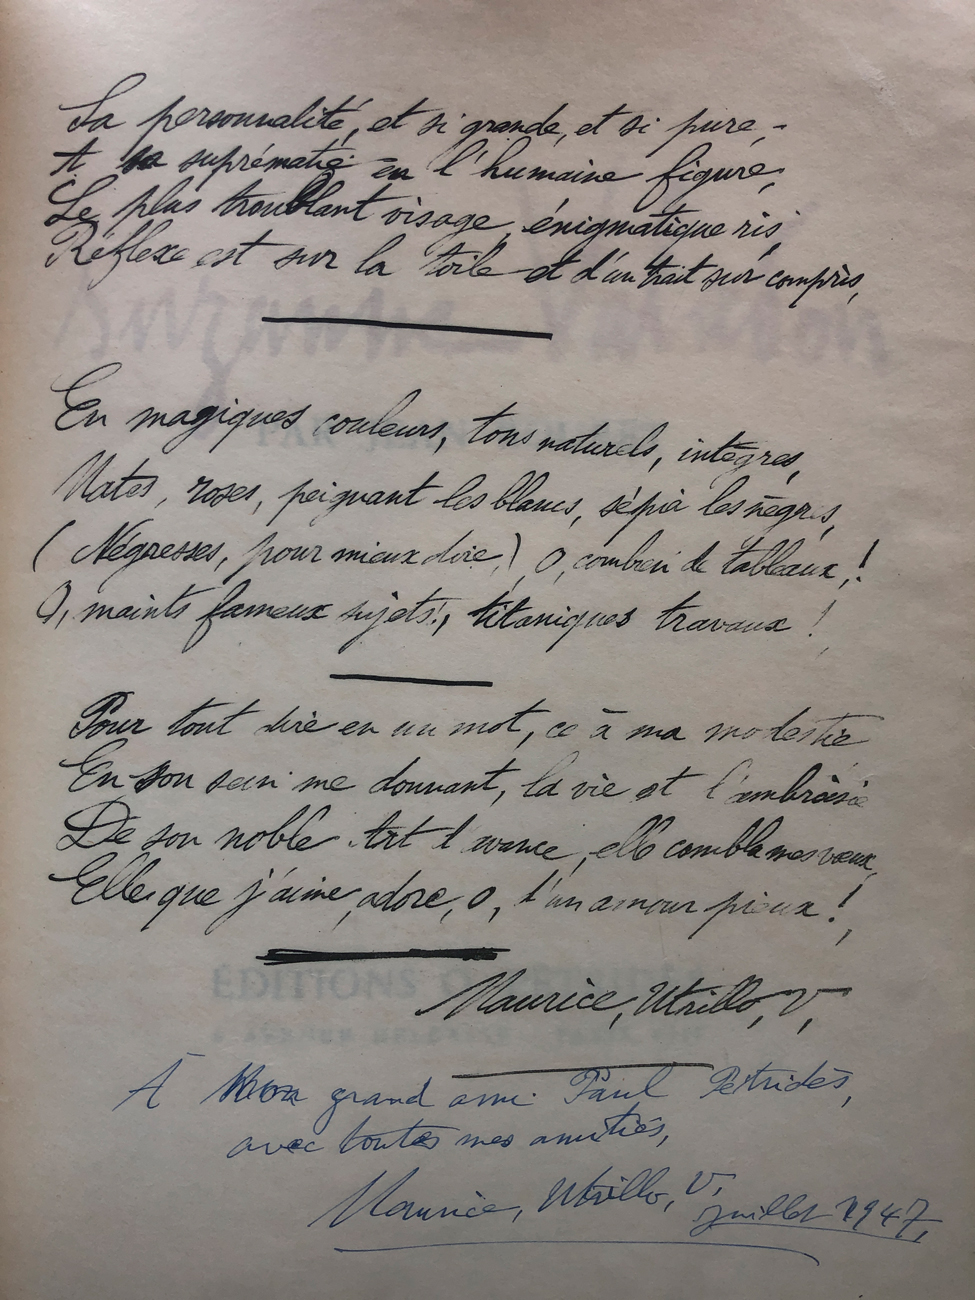 Sa personnalité, et si grande, et si pure, -
A sa suprématie en l'humaine figure,
Le plus troublant visage, énigmatique ris,
Reflexe est sur la toile et d'un trait sur compris,
En magiques couleurs, tons naturels, intègres,
Mates, roses, peignant les blancs, sépia les nègres,
(Négresses, pour mieux dire,), O, combien de tableaux,!
O, maints fameux sujets!, titaniques travaux !
Pour tout dire en un mot, ce à ma modestie
En son sein me donnant, la vie et l'ambroisie
De son noble Art d'avance, elle combla mes vœux,
Elle que j'aime, adore, O, d'un amour pieux !,
Maurice, Utrillo, V,
À mon grand ami Paul Pétridès,
avec toutes mes amitiés,
Maurice, Utrillo, V,
juillet 1947,
ÉDITIONS